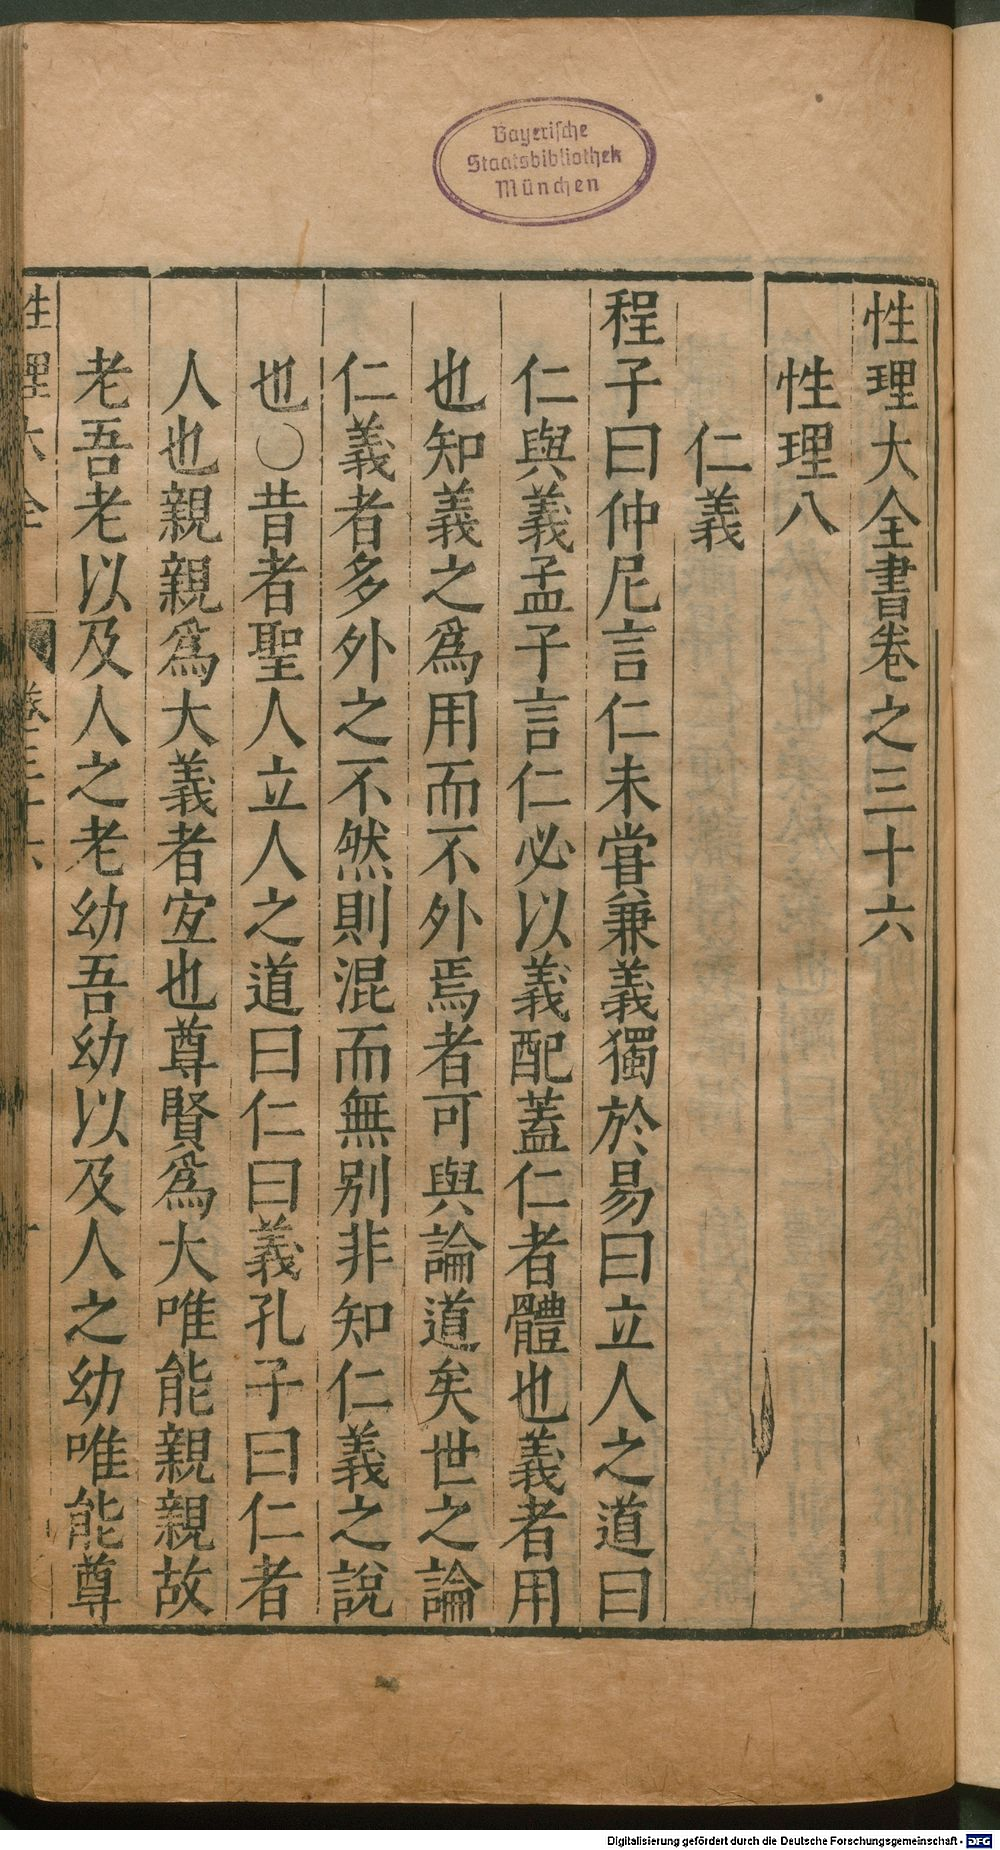 Bayerische
Staatsbibliothek
München
性理大全書卷之三十六
性理八
仁義
程子曰仲尼言仁未嘗兼義獨於易曰立人之道曰
仁與義孟子言仁必以義配蓋仁者體也義者用
也知義之爲用而不外焉者可與論道矣世之論
仁義者多外之不然則混而無别非知仁義之說
也○昔者聖人立人之道曰仁曰義孔子曰仁者
人也親親爲大義者宐也尊賢爲大唯能親親故
老吾老以及人之老幼吾幼以及人之幼唯能尊
性理大全 卷三十六 一
Digitalisierung gefördert durch die Deutsche Forschungsgemeinschaft - DFG